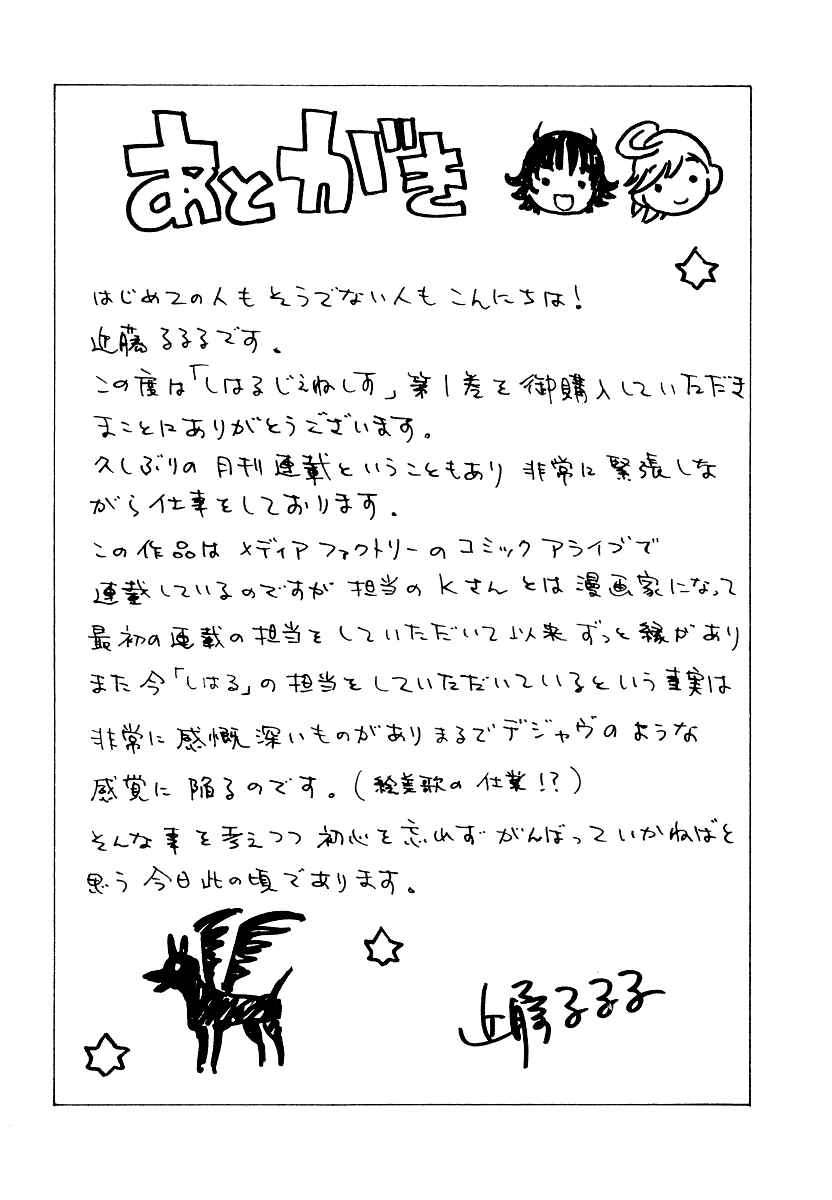 あとがき
はじめての人もそうでない人もこんにちは!
近藤るるるです。
この度は「しはるじぇねしす」第1巻を御購入していただき
まことにありがとうございます。
久しぶりの月刊連載ということもあり非常に緊張しな
がら仕事をしております。
この作品はメディアファクトリーのコミックアライブで
連載しているのですが担当のKさんとは漫画家になって
最初の連載の担当をしていただいて以来ずっと縁があり
また今「しはる」の担当をしていただいているという事実は
非常に感慨深いものがありまるでデジャヴのような
感覚に陥るのです。(絵美歌の仕業!?)
そんな事を考えつつ初心を忘れずがんばっていかねばと
思う今日此の頃であります。
近藤るるる